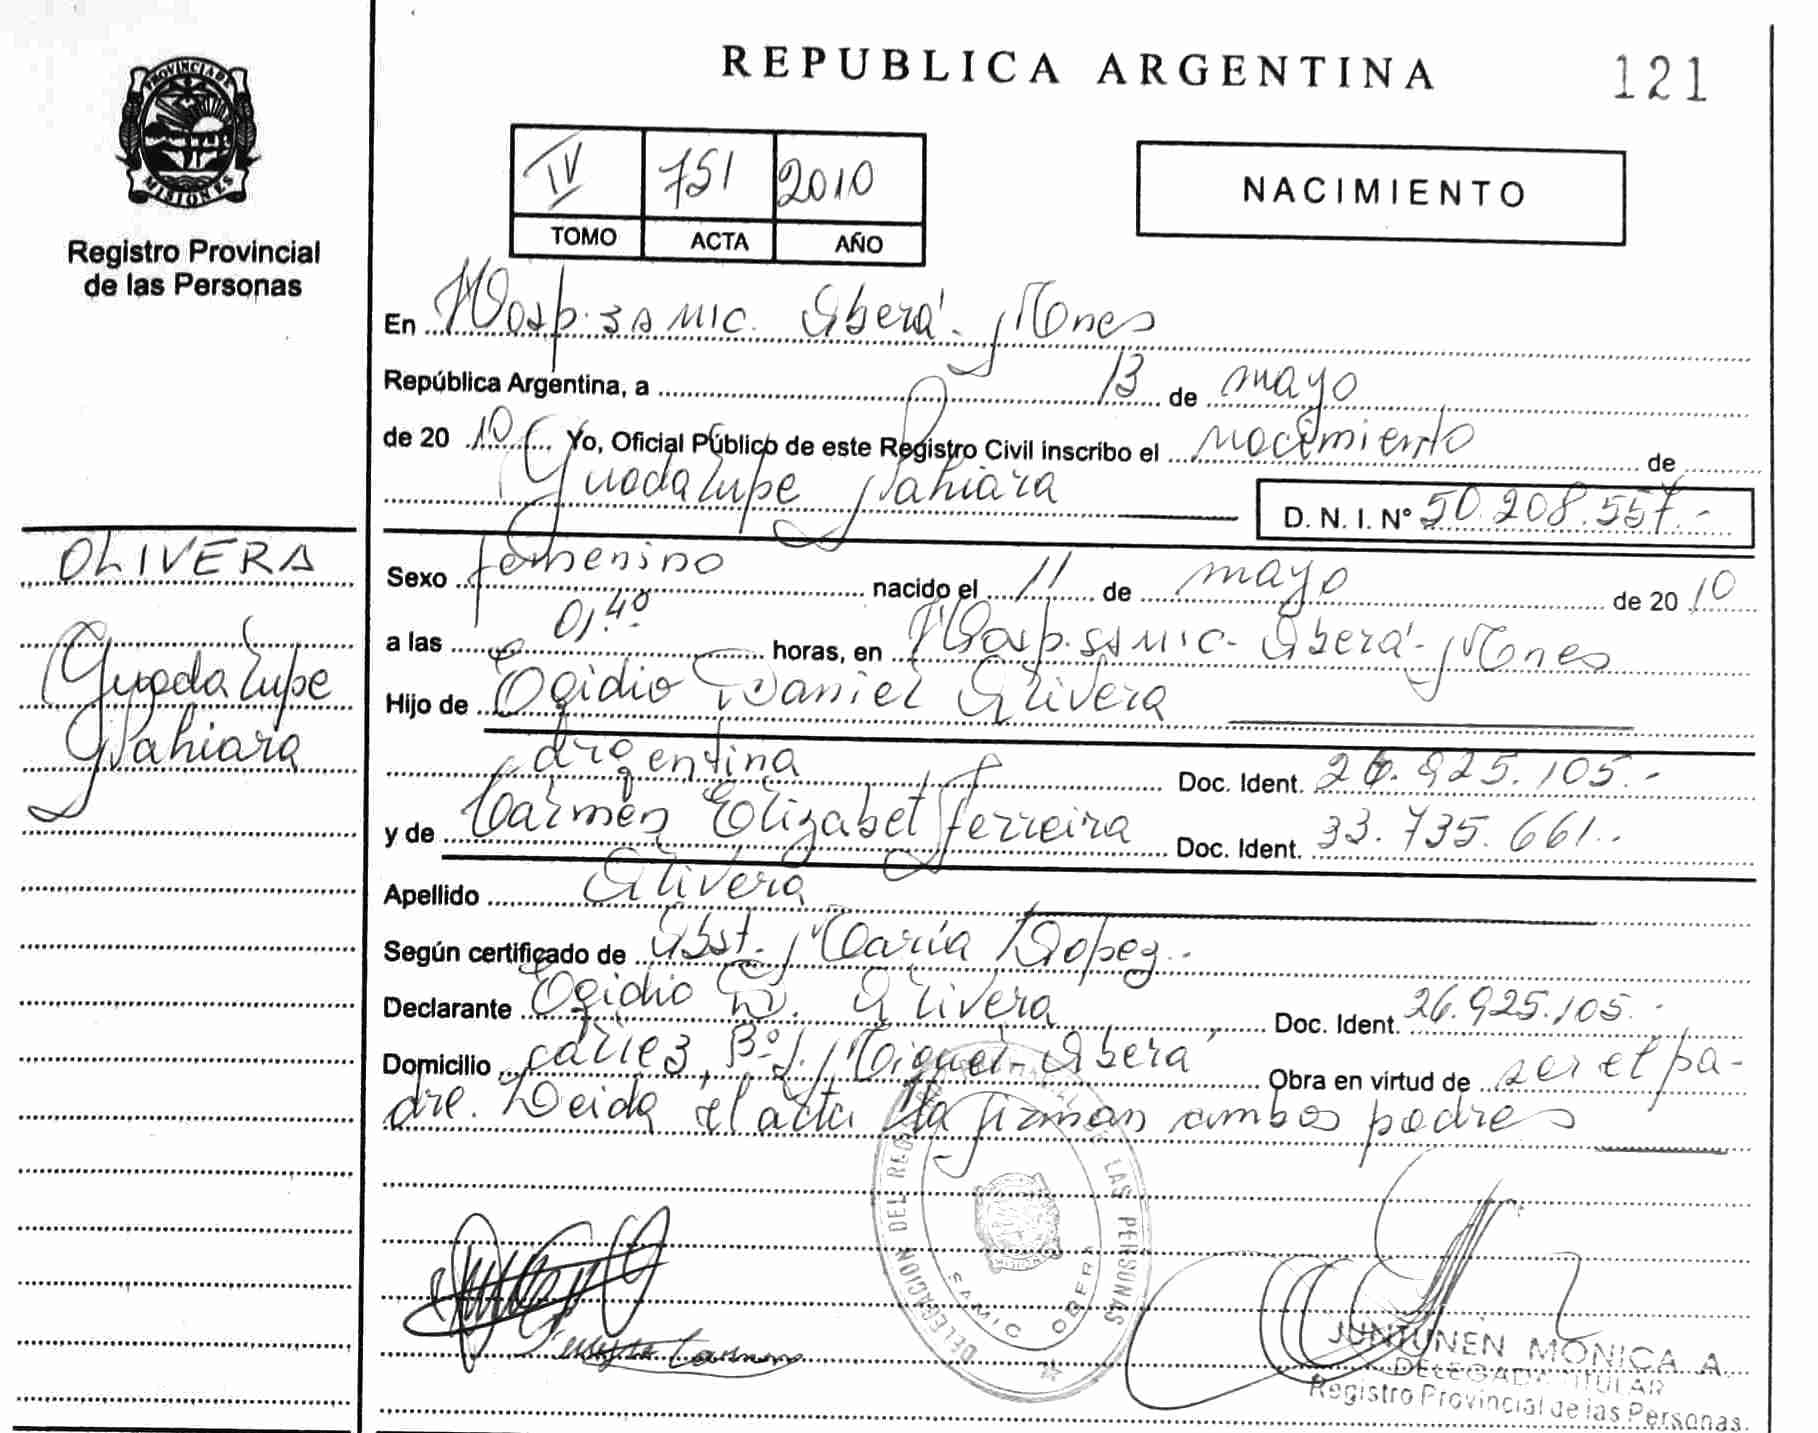 REPUBLICA ARGENTINA
121
PROVINCIA DE
MISIONES
Registro Provincial
de las Personas
IV 751 2010
TOMO ACTA AÑO
NACIMIENTO
En Hosp. SAMIC. Oberá. Mnes
República Argentina, a 13 de mayo
de 2010 Yo, Oficial Público de este Registro Civil inscribo el nacimiento de
Guadalupe Nahiara D. N. I. Nº 50.208.557.-
OLIVERA
Guadalupe
Nahiara
Sexo femenino nacido el 11 de mayo de 2010
a las 01,40 horas, en Hosp. SAMIC- Oberá- Mnes
Hijo de Egidio Daniel Olivera
argentina Doc. Ident. 26.925.105.-
y de Carmen Elizabet Ferreira Doc. Ident. 33.735.661.-
Apellido Olivera
Según certificado de Obst. María Lopez.-
Declarante Egidio D. Olivera Doc. Ident. 26.925.105.-
Domicilio Bº Miguel- Oberá Obra en virtud de ser el pa-
dre. Leida el acta la firman ambos padres
DELEGACION DEL REGISTRO PROVINCIAL DE LAS PERSONAS
SAMIC OBERA
JUNTUNEN MONICA A.
DELEGADA TITULAR
Registro Provincial de las Personas.